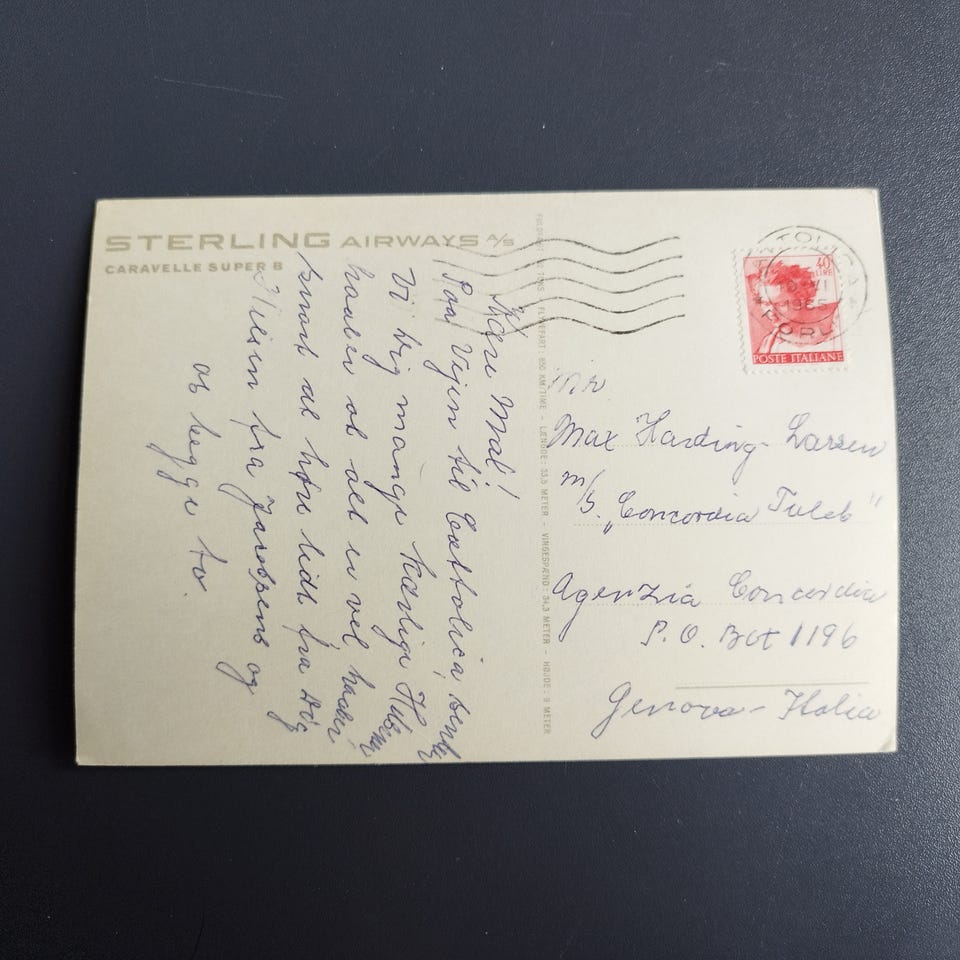 STERLING AIRWAYS A/S
CARAVELLE SUPER B
Kære Mal!
Paa Vejen til Cattolica, sender
Vi dig mange kærlige Hilsner
haaber at alt er vel, haaber
snart at høre lidt fra Dig
Hilsen fra Jacobsens og
os begge to.
FART: 850 KM/TIME - LÆNGDE: 33,5 METER - VINGESPÆND: 34,3 METER - HØJDE: 9 METER
40
LIRE
POSTE ITALIANE
1965
FORLI
Mr
Max Harding-Larsen
m/S. „Concordia Taleb"
Agenzia Concordia
P.O. Box 1196
Genova - Italia